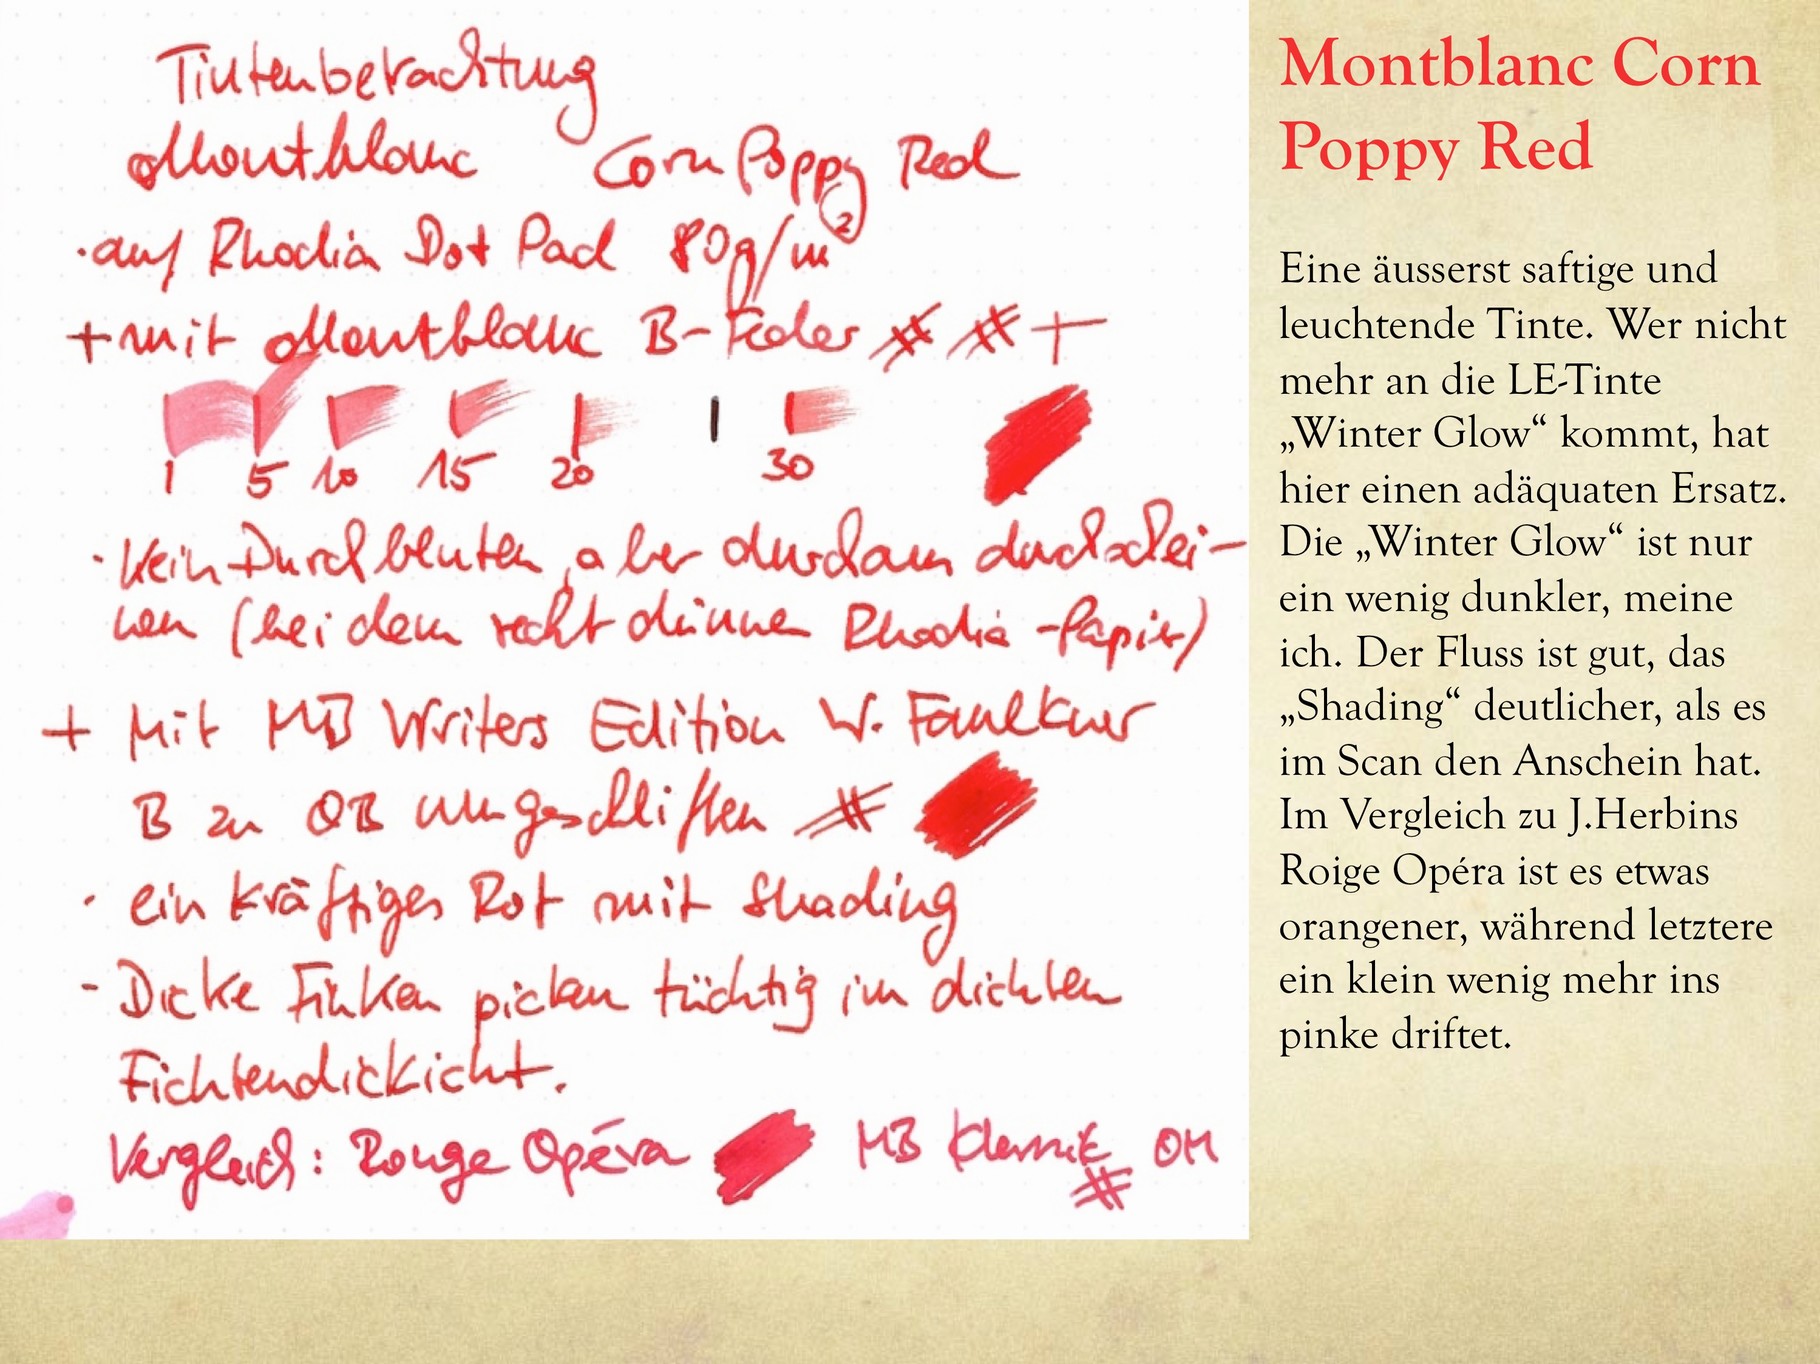 Tintenbetrachtung
Montblanc Corn Poppy Red
· auf Rhodia Dot Pad 80g/m²
+ mit Montblanc B-Feder # # +
1 5 10 15 20 30
· Kein Durchbluten, aber durchaus durchschei-
nen (bei dem recht dünnen Rhodia-Papier)
+ Mit MB Writers Edition W. Faulkner
B zu OB umgeschliffen #
· ein kräftiges Rot mit Shading
- Dicke Finken picken tüchtig im dichten
Fichtendickicht.
Vergleich: Rouge Opéra MB Klassik OM
#
Montblanc Corn
Poppy Red
Eine äusserst saftige und
leuchtende Tinte. Wer nicht
mehr an die LE-Tinte
„Winter Glow“ kommt, hat
hier einen adäquaten Ersatz.
Die „Winter Glow“ ist nur
ein wenig dunkler, meine
ich. Der Fluss ist gut, das
„Shading“ deutlicher, als es
im Scan den Anschein hat.
Im Vergleich zu J.Herbins
Roige Opéra ist es etwas
orangener, während letztere
ein klein wenig mehr ins
pinke driftet.